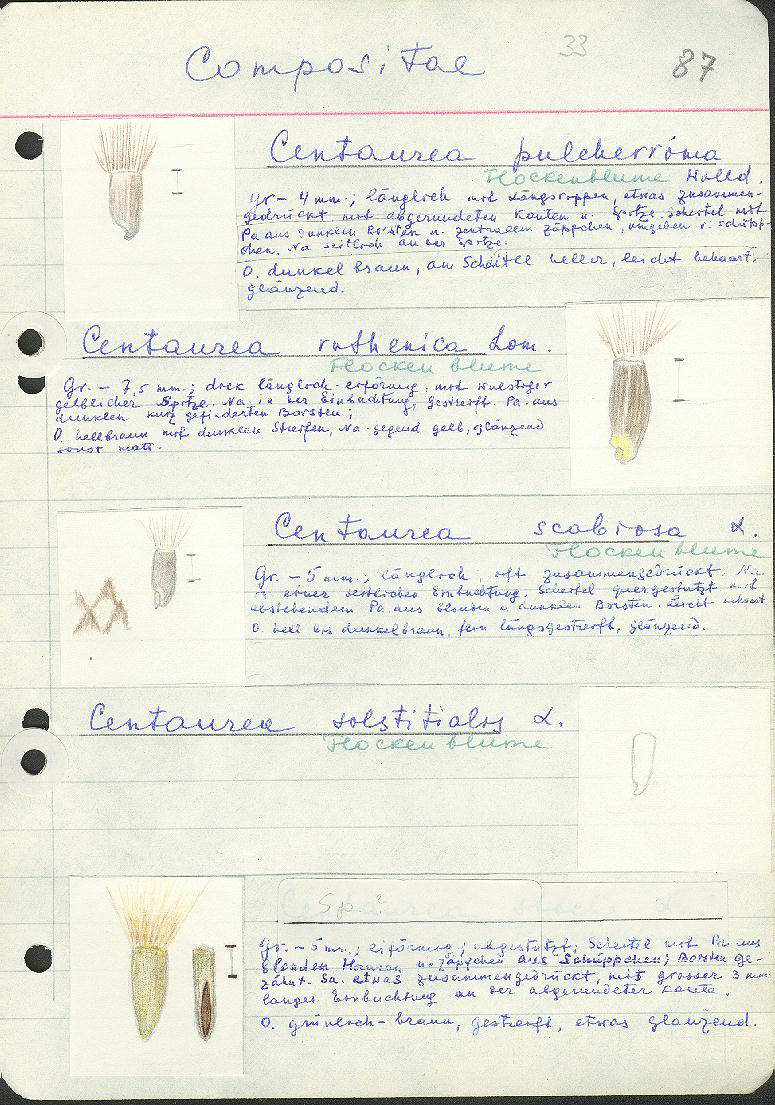 Compositae 33 87
Centaurea pulcherrima
Flockenblume Willd.
Gr – 4 mm; länglich mit Längsrippen, etwas zusammen-
gedrückt mit abgerundeten Kanten u. Spitze. Scheitel mit
Pa aus dunklen Borsten u. zentralem Zäppchen, umgeben v. Schüpp-
chen. Na seitlich an der Spitze.
O. dunkelbraun, am Scheitel heller, leicht behaart,
glänzend.
Centaurea ruthenica Lam.
Flockenblume
Gr. – 7,5 mm; dick länglich-eiförmig, mit wulstiger
gelblicher Spitze. Na in der Einbuchtung, gestreift. Pa aus
dunklen kurz gefiederten Borsten;
O. hellbraun mit dunklen Streifen, Na-gegend gelb, glänzend
sonst matt.
Centaurea scabiosa L.
Flockenblume
Gr. – 5 mm.; länglich, oft zusammengedrückt. Na
in einer seitlichen Einbuchtung. Scheitel quergestutzt mit
abstehendem Pa aus blonden o. dunklen Borsten. Leicht behaart
O. hell bis dunkelbraun, fein längsgestreift, glänzend.
Centaurea solstitialis L.
Flockenblume
Sp.?
Gr. – 5 mm.; eiförmig; abgestutzt; Scheitel mit Pa aus
blonden Haaren u. Zäppchen aus Schüppchen; Borsten ge-
zähnt. Sa. etwas zusammengedrückt, mit grosser 3 mm
langer Einbuchtung an der abgerundeter Kante.
O. grünlich-braun, gestreift, etwas glänzend.